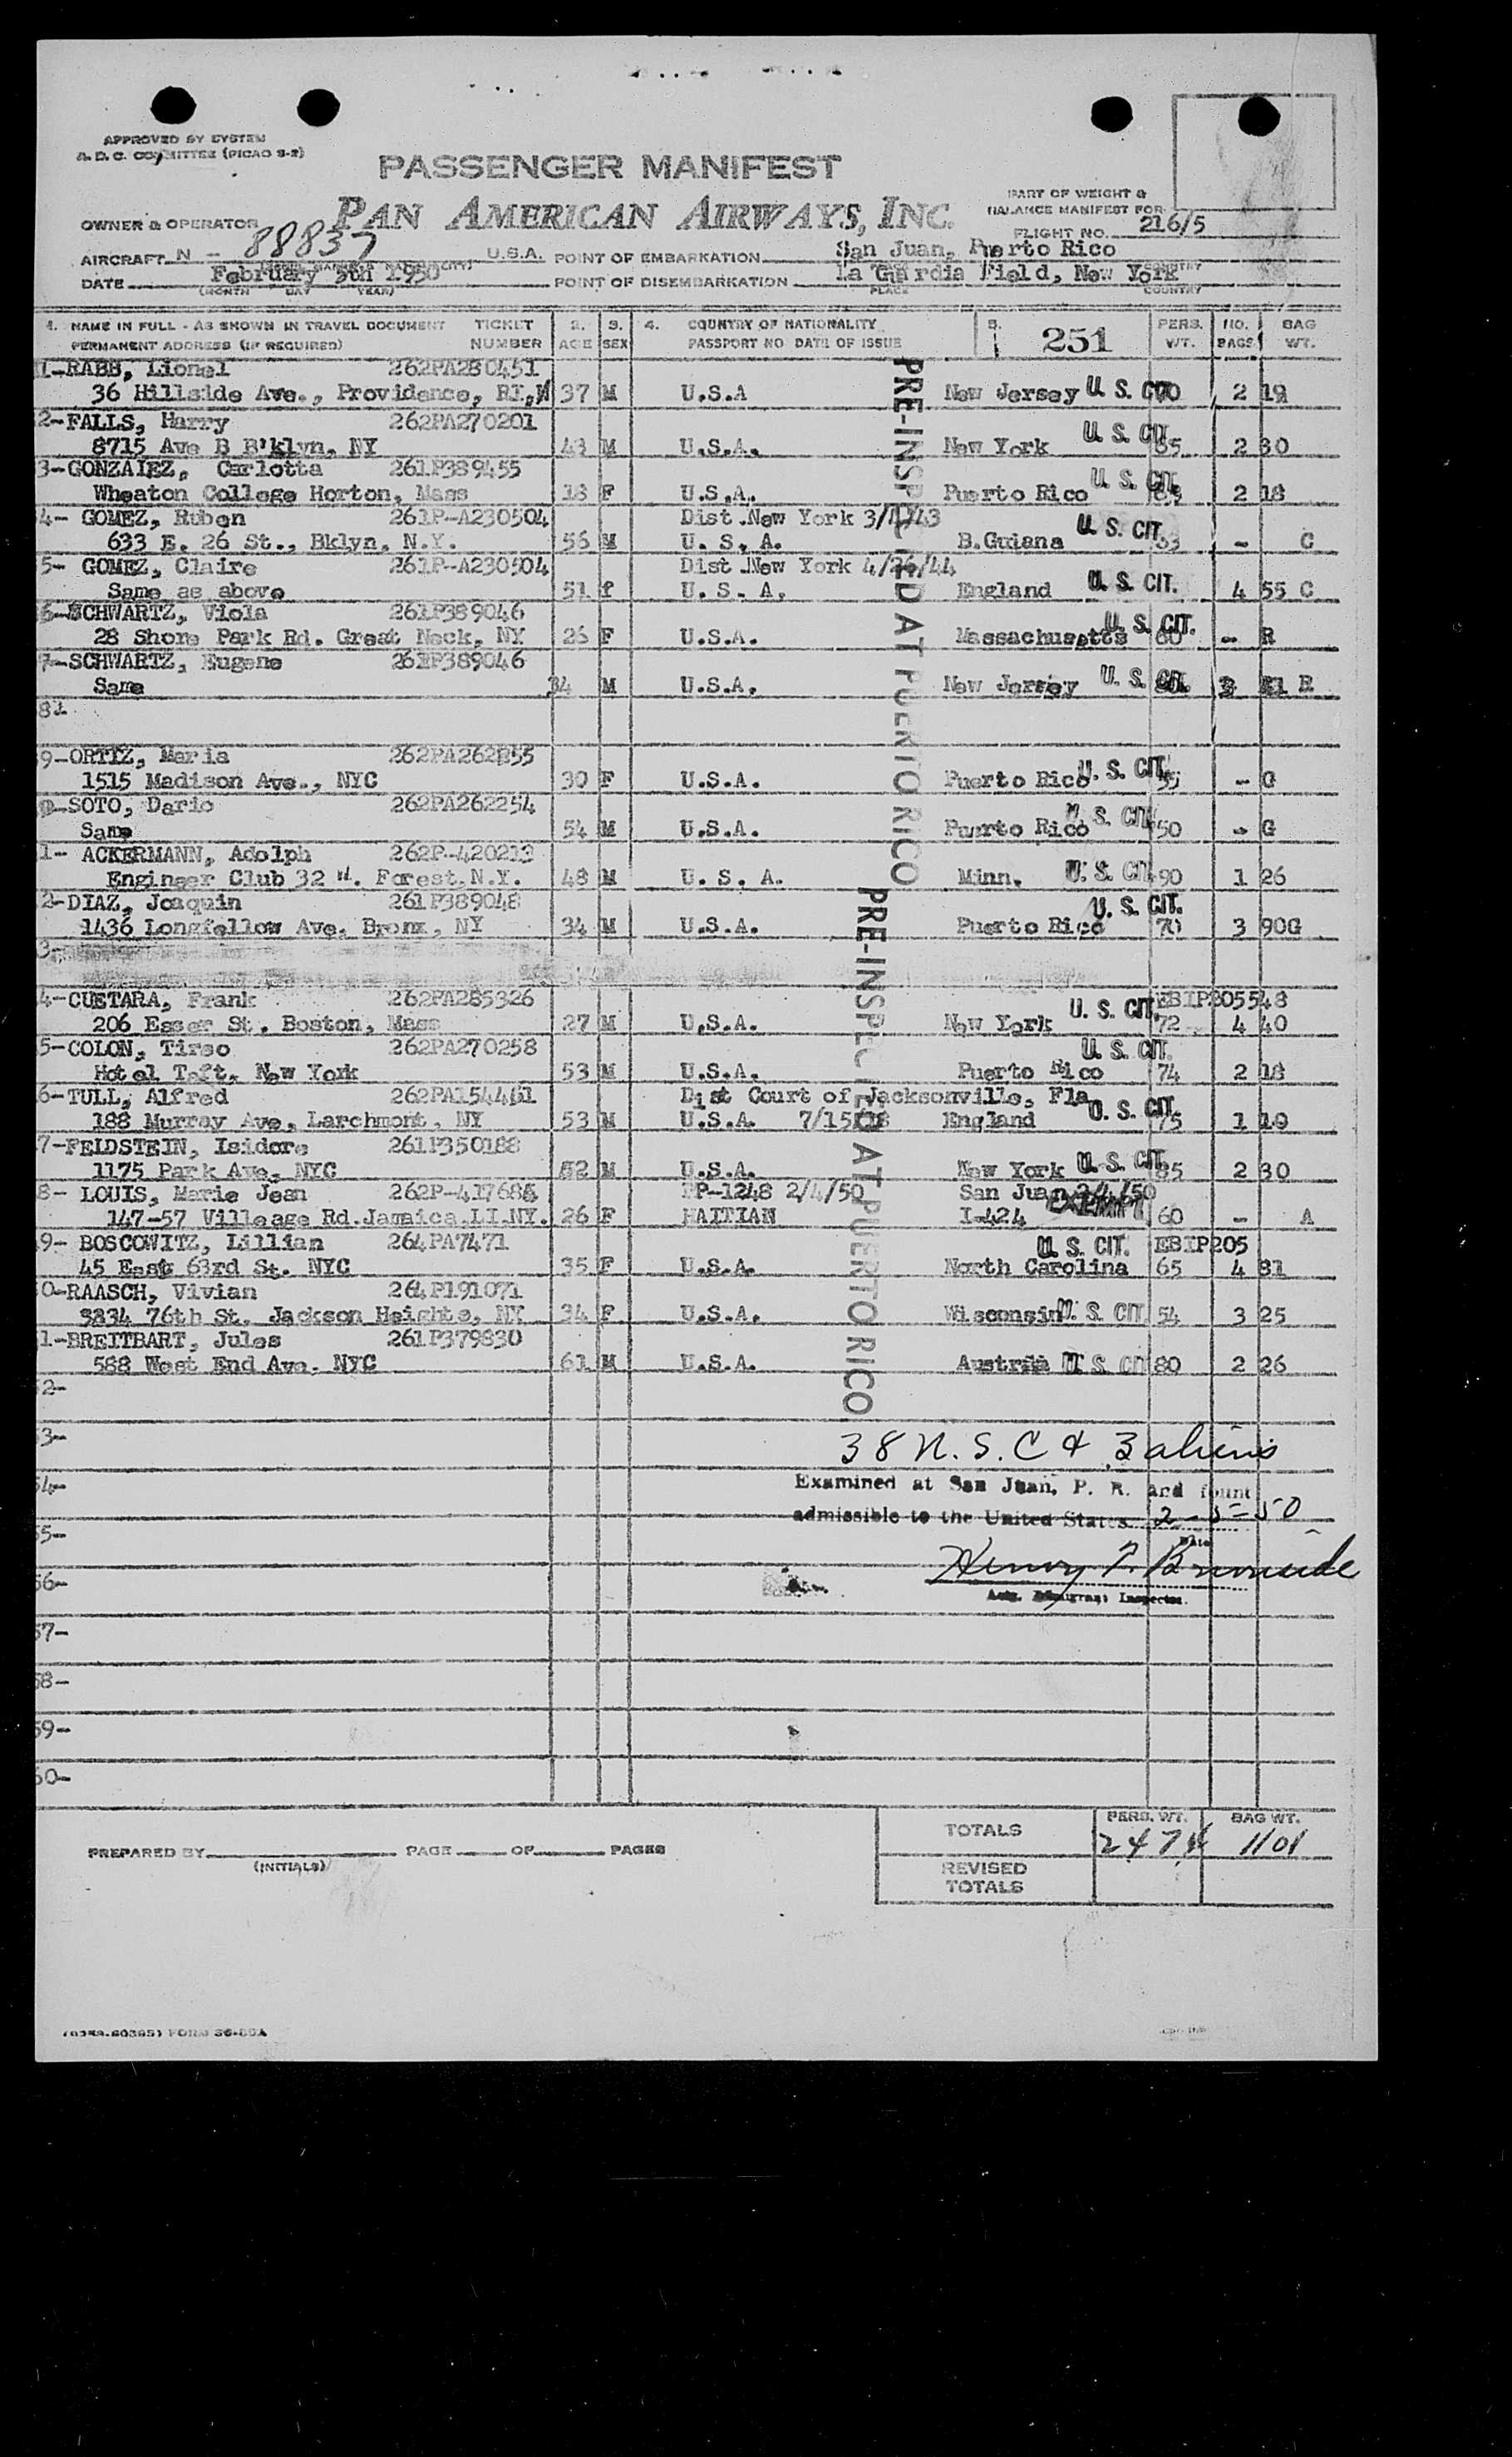 APPROVED BY SYSTEM
A. D. C. COMMITTEE (PICAO 9-2)
PASSENGER MANIFEST
PART OF WEIGHT &
BALANCE MANIFEST FOR
OWNER & OPERATOR PAN AMERICAN AIRWAYS, INC.
FLIGHT NO. 216/5
AIRCRAFT N - 88837 U.S.A. POINT OF EMBARKATION San Juan, Puerto Rico
DATE February 5th 1950 POINT OF DISEMBARKATION La Gardia Field, New York
(MONTH DAY YEAR) PLACE COUNTRY
1. NAME IN FULL - AS SHOWN IN TRAVEL DOCUMENT TICKET 2. 3. 4. COUNTRY OF NATIONALITY 5. 251 PERS. NO. BAG
PERMANENT ADDRESS (IF REQUIRED) NUMBER AGE SEX PASSPORT NO DATE OF ISSUE WT. BAGS WT.
1-RABB, Lionel 262PA280451
36 Hillside Ave., Providence, RI, 37 M U.S.A New Jersey U. S. CIT 2 19
2-FALLS, Harry 262PA270201
8715 Ave B B'klyn, NY 43 M U.S.A. New York U. S. CIT. 85 2 30
3-GONZALEZ, Carlotta 261P389455
Wheaton College Horton, Mass 18 F U.S.A. Puerto Rico U. S. CIT. 2 18
4- GOMEZ, Ruben 261P-A230504 Dist.New York
633 E. 26 St., Bklyn, N.Y. 56 M U. S. A. B.Guiana U. S. CIT. 63 - C
5- GOMEZ, Claire 261P-A230504 Dist.New York 4/24/44
Same as above 51 f U. S. A. England U. S. CIT. 4 55 C
6-SCHWARTZ, Viola 261P389046
28 Shore Park Rd. Great Neck, NY 26 F U.S.A. Massachusetts U. S. CIT. 60 - R
7-SCHWARTZ, Eugene 261P389046
Same 34 M U.S.A. New Jersey U. S. CIT. 3 R
8-
9-ORTIZ, Maria 262PA262255
1515 Madison Ave., NYC 30 F U.S.A. Puerto Rico U. S. CIT. 55 - G
0-SOTO, Dario 262PA262254
Same 54 M U.S.A. Puerto Rico U. S. CIT. 50 - G
1- ACKERMANN, Adolph 262P-420213
Engineer Club 32 W. Forest,N.Y. 48 M U. S. A. Minn. U. S. CIT. 90 1 26
2-DIAZ, Joaquin 261P389048
1436 Longfellow Ave. Bronx, NY 34 M U.S.A. Puerto Rico U. S. CIT. 70 3 90G
3-
4-CUETARA, Frank 262PA285326 EBIP205548
206 Esser St. Boston, Mass 27 M U.S.A. New York U. S. CIT. 72 4 40
5-COLON, Tirso 262PA270258
Hotel Taft, New York 53 M U.S.A. Puerto Rico U. S. CIT. 74 2 18
6-TULL, Alfred 262PA154461 Dist Court of Jacksonville, Fla
188 Murray Ave, Larchmont, NY 53 M U.S.A. 7/15/18 England U. S. CIT. 75 1 19
7-FELDSTEIN, Isidore 261P350188
1175 Park Ave, NYC 52 M U.S.A. New York U. S. CIT. 85 2 30
8- LOUIS, Marie Jean 262P-417684 PP-1248 2/4/50 San Juan 2/4/50
147-57 Villeage Rd.Jamaica.LI.NY. 26 F HAITIAN I-424 EXEMPT 60 - A
9- BOSCOWITZ, Lillian 264PA7471 U. S. CIT. EBIP205
45 East 63rd St. NYC 35 F U.S.A. North Carolina 65 4 81
0-RAASCH, Vivian 264P191071
3834 76th St. Jackson Heights, NY 34 F U.S.A. Wisconsin U. S. CIT. 54 3 25
1-BREITBART, Jules 261P379830
588 West End Ave. NYC 61 M U.S.A. Austria U. S. CIT 80 2 26
PRE-INSPECTED AT PUERTO RICO
PRE-INSPECTED AT PUERTO RICO
2-
3-
38 U. S. C & 3 aliens
4-
Examined at San Juan, P. R. and found
admissible to the United States 2-5-50
5-
Date
6-
Henry P. Burnside
Actg. Immigrant Inspector.
57-
58-
59-
60-
TOTALS PERS. WT. 2474 BAG WT. 1101
PREPARED BY (INITIALS) PAGE OF PAGES
REVISED
TOTALS